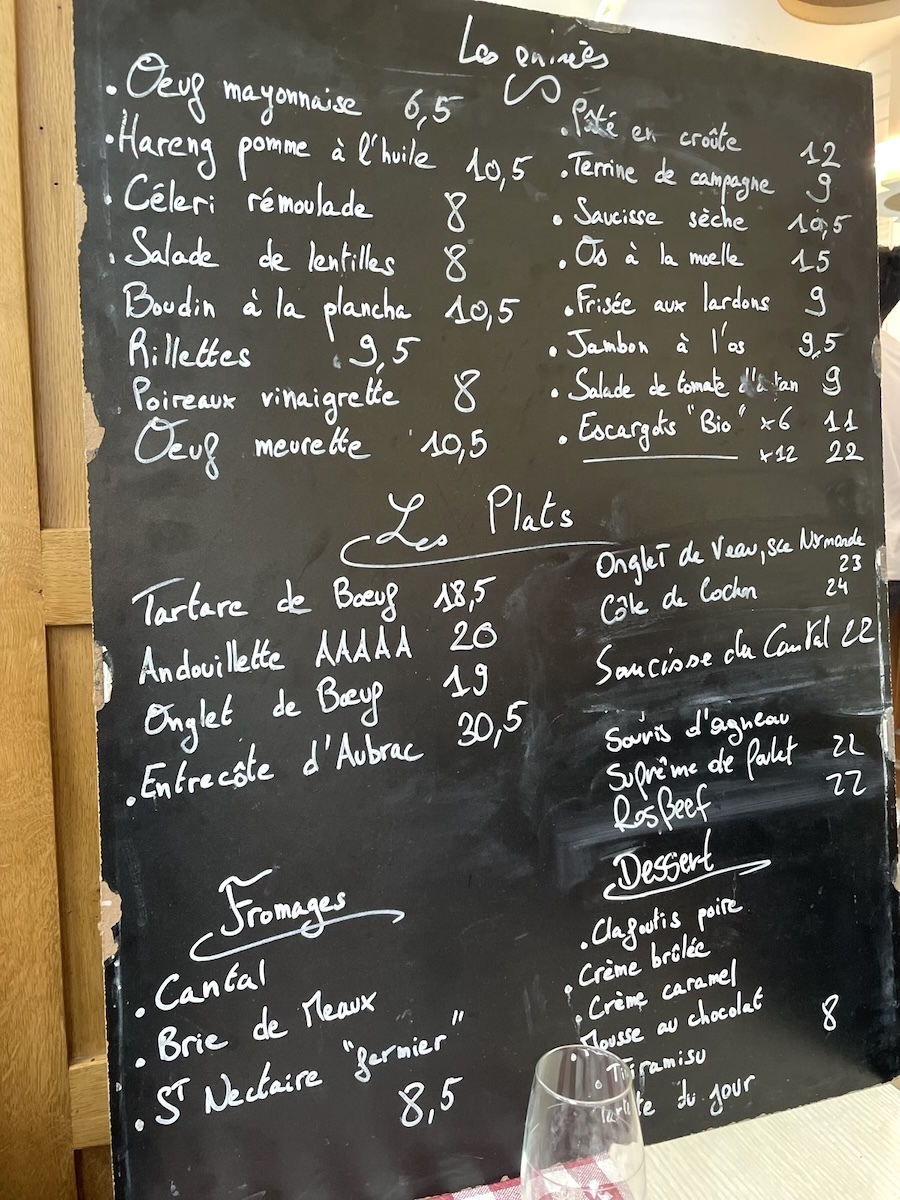 Les entrées
. Oeuf mayonnaise 6,5
. Hareng pomme à l'huile 10,5
. Céleri rémoulade 8
. Salade de lentilles 8
Boudin à la plancha 10,5
Rillettes 9,5
Poireaux vinaigrette 8
Oeuf meurette 10,5
. Pâté en croûte 12
. Terrine de campagne 9
. Saucisse sèche 10,5
. Os à la moelle 15
. Frisée aux lardons 9
. Jambon à l'os 9,5
. Salade de tomate 9
. Escargots "Bio" x6 11
x12 22
Les Plats
Tartare de Bœuf 18,5
Andouillette AAAAA 20
Onglet de Bœuf 19
. Entrecôte d'Aubrac 30,5
Onglet de Veau, sce Normande
23
Côte de Cochon 24
Saucisse du Cantal 22
Souris d'agneau
Suprême de Poulet 22
Rosbeef 22
Fromages
. Cantal
. Brie de Meaux
. St Nectaire "fermier"
8,5
Dessert
. Clafoutis poire
. Crème brûlée
. Crème caramel
Mousse au chocolat 8
. Tiramisu
Tarte du jour